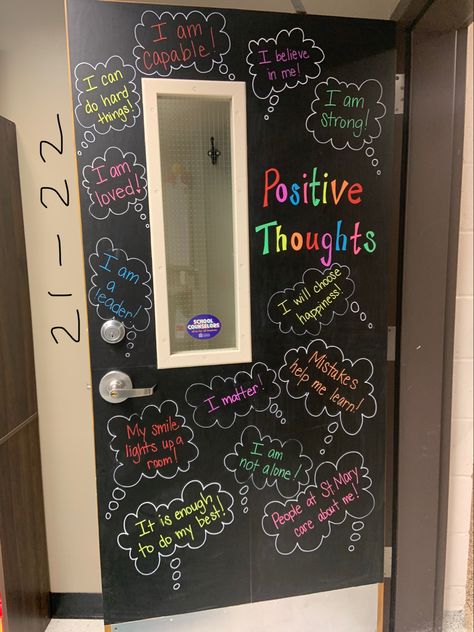 I am
capable!
I believe
in me!
I can
do hard
things!
I am
strong!
I am
loved!
Positive
Thoughts
I am
a
leader
I will choose
happiness!
21-22
SCHOOL
COUNSELORS
Mistakes
help me learn!
I matter!
My
smile
lights up a
room!
I am
not alone!
It is enough
to do my best!
People at St Mary
care about me!